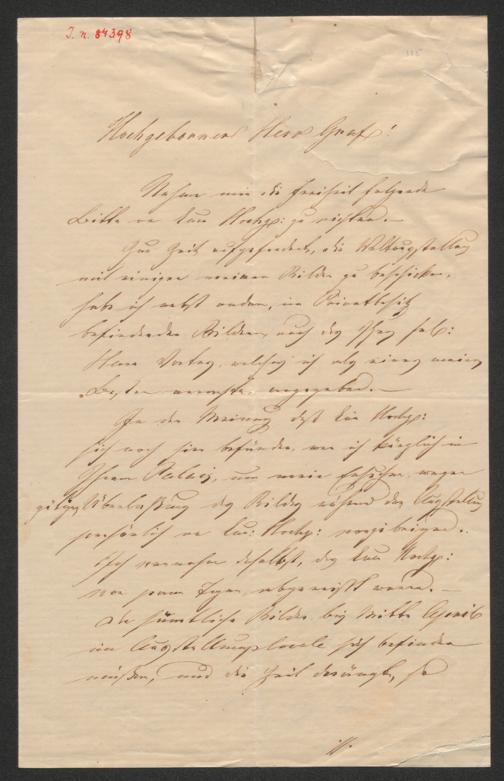 I. n. 84398
Hochgeborner Herr Graf!
Nehme mir die Freiheit folgende
Bitte an Eure Hochg: zu richten. —
Zur Zeit aufgefordert, die Weltausstellung
mit einigen meiner Bilder zu beschicken,
habe ich nebst andern, im Privatbesitz
befindenden Bildern, auch das Ihres
Herrn Vaters, welches ich als eines meiner
Besten erachte, angegeben. —
In der Meinung daß Eure Hochg:
sich noch hier befänden, war ich kürzlich in
Ihrem Palais, um mein Ersuchen wegen
gütiger Überlaßung des Bildes während der Ausstellung
persönlich an Eu: Hochg: vorzubringen.
Ich vernahm daselbst, daß Eure Hochg:
vor paar Tagen abgereist waren. —
Da sämtliche Bilder bis Mitte April
im Ausstellungslocale sich befinden
müßen, und die Zeit drängt, so